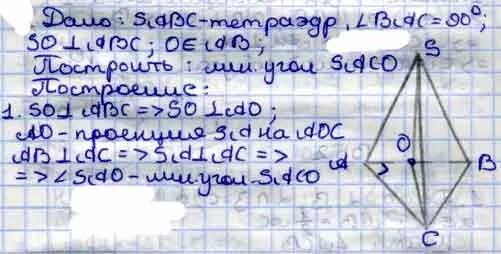 Дано: SABC-тетраэдр, ∠BAC=90°;
SO⊥ABC; O∈AB;
Построить: лин. угол SACO
Построение:
1. SO⊥ABC=>SO⊥AO;
AO-проекция SA на AOC
AB⊥AC=>SA⊥AC=>
=>∠SAO-лин. угол SACO
S
O
A
B
C